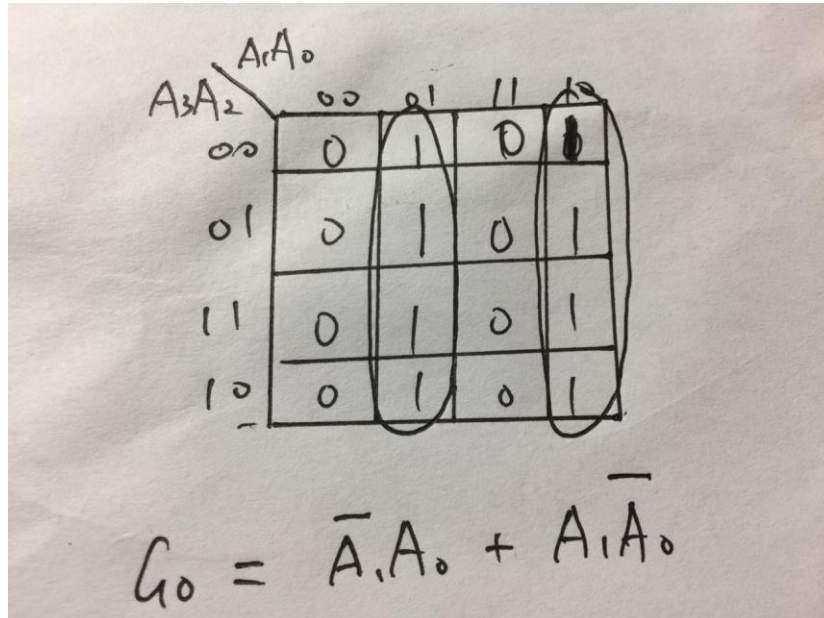 A₁A₀
A₃A₂ 00 01 11 10
00 0 1 0 1
01 0 1 0 1
11 0 1 0 1
10 0 1 0 1
G₀ = A̅₁A₀ + A₁A̅₀